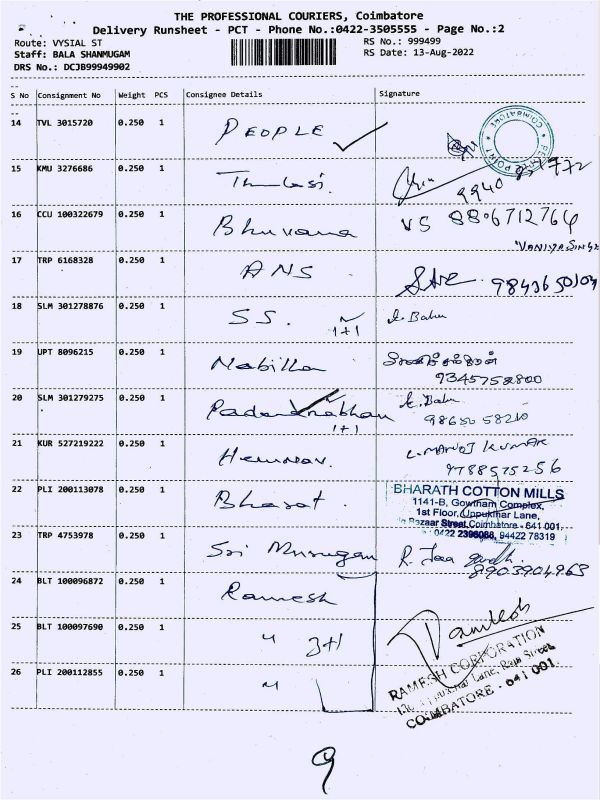 THE PROFESSIONAL COURIERS, Coimbatore
Delivery Runsheet - PCT - Phone No.:0422-3505555 - Page No.:2
Route: VYSIAL ST RS No.: 999499
Staff: BALA SHANMUGAM RS Date: 13-Aug-2022
DRS No.: DCJB99949902
S No Consignment No Weight PCS Consignee Details Signature
14 TVL 3015720 0.250 1 PEOPLE
COIMBATORE
POINT
15 KMU 3276686 0.250 1 Thulasi.
16 CCU 100322679 0.250 1 Bhuvana VS 8806712764
17 TRP 6168328 0.250 1 ANS
18 SLM 301278876 0.250 1 SS. 1+1 Babu
19 UPT 8096215 0.250 1 Nabilla
9345752800
20 SLM 301279275 0.250 1 Padmanabhan 1+1 Babu
98650 58210
21 KUR 527219222 0.250 1 L. MANOJ KUMAR
9788575256
22 PLI 200113078 0.250 1 Bharat.
BHARATH COTTON MILLS
1141-B, Gowtham Complex,
1st Floor, Uppukinar Lane,
Bazaar Street, Coimbatore - 641 001.
0422 2396088, 94422 78319
23 TRP 4753978 0.250 1 Sri Murugan R.
8903904963
24 BLT 100096872 0.250 1 Ramesh
25 BLT 100097690 0.250 1 " 3+1
26 PLI 200112855 0.250 1 "
Ramesh
RAMESH CORPORATION
Lane, Raja Street,
COIMBATORE - 641 001
9